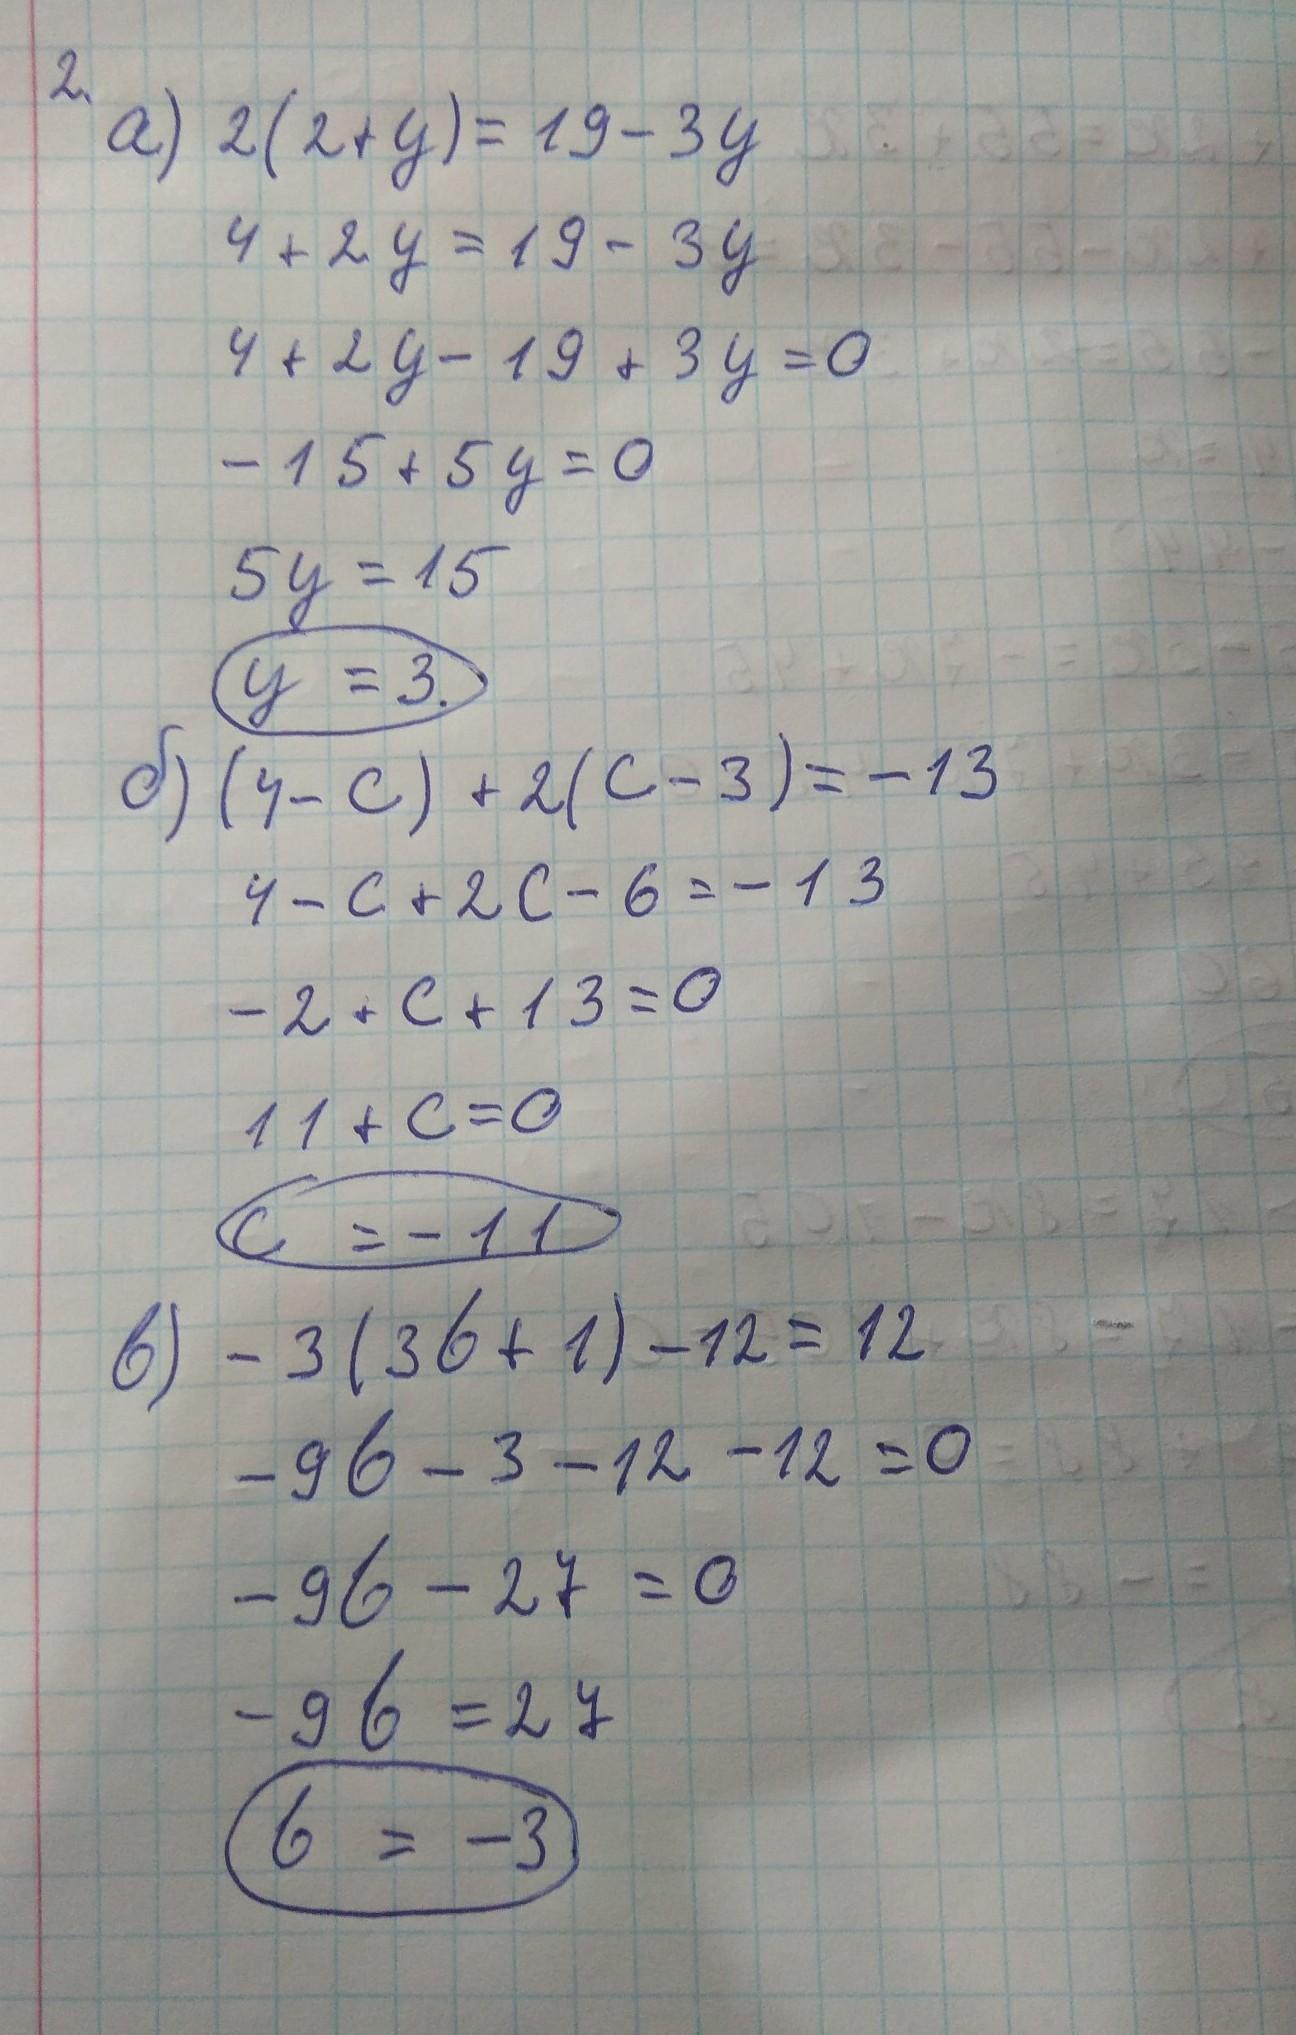 2.
а) 2(2+y)=19-3y
4+2y=19-3y
4+2y-19+3y=0
-15+5y=0
5y=15
y=3.
б) (4-c)+2(c-3)=-13
4-c+2c-6=-13
-2+c+13=0
11+c=0
c=-11
в) -3(3b+1)-12=12
-9b-3-12-12=0
-9b-27=0
-9b=27
b=-3